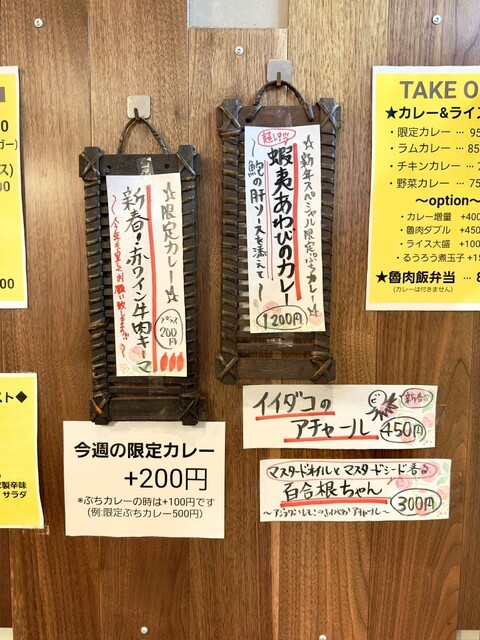 ☆限定カレー☆
新春!赤ワイン牛肉キーマ
〜今年も宜しくお願い致します!!〜
プラス
200円
☆新年スペシャル限定ぷちカレー☆
蝦夷あわびのカレー
〜鮑の肝ソースを添えて〜
1200円
今週の限定カレー
+200円
※ぷちカレーの時は+100円です
(例:限定ぷちカレー500円)
イイダコの
アチャール
450円
マスタードオイルとマスタードシード香る
百合根ちゃん
300円
TAKE O
★カレー&ライス
・限定カレー … 95
・ラムカレー … 85
・チキンカレー … 7
・野菜カレー … 75
〜option〜
・カレー増量 +400
・魯肉ダブル +450
・ライス大盛 +100
・るうろう煮玉子 +15
★魯肉飯弁当 … 8
(カレーは付きません)
ガー)
ス)
00
スト◆
製辛味
サラダ